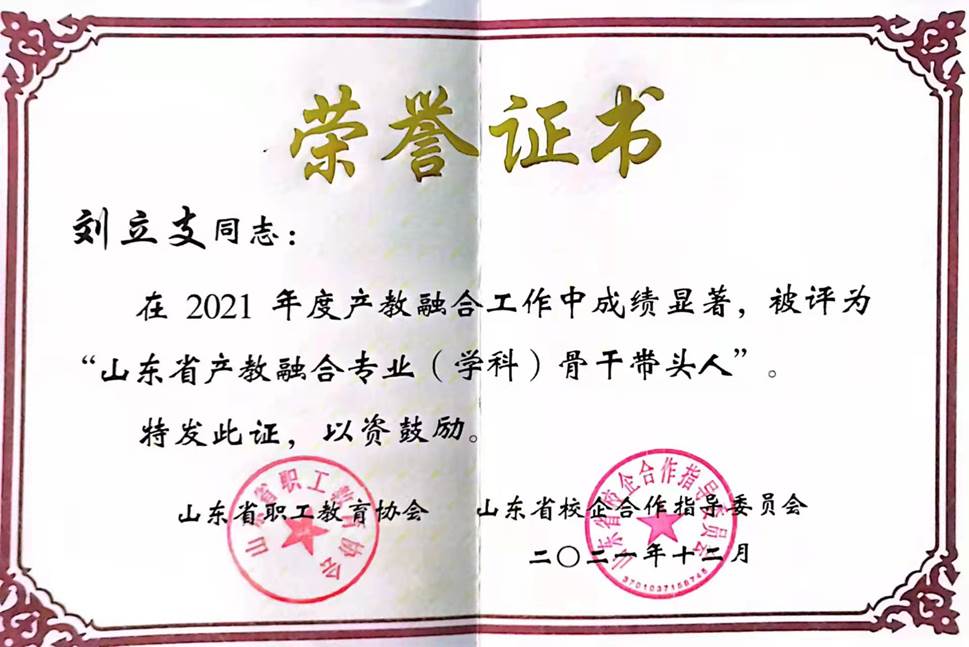 荣誉证书
刘立支同志：
在 2021 年度产教融合工作中成绩显著，被评为
“山东省产教融合专业（学科）骨干带头人”。
特发此证，以资鼓励。
山东省职工教育协会 山东省校企合作指导委员会
二〇二一年十二月
山东省职工教育协会
山东省校企合作指导委员会
3701037158748